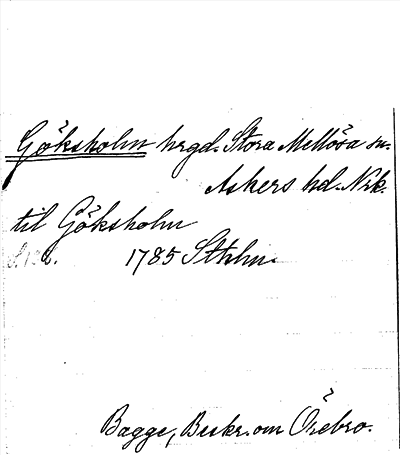 Göksholm hrgd. Stora Mellösa sn.
Askers hd. Nrk.
til Göksholm
1785 Sthlm.
Bagge, Beskr. om Örebro.